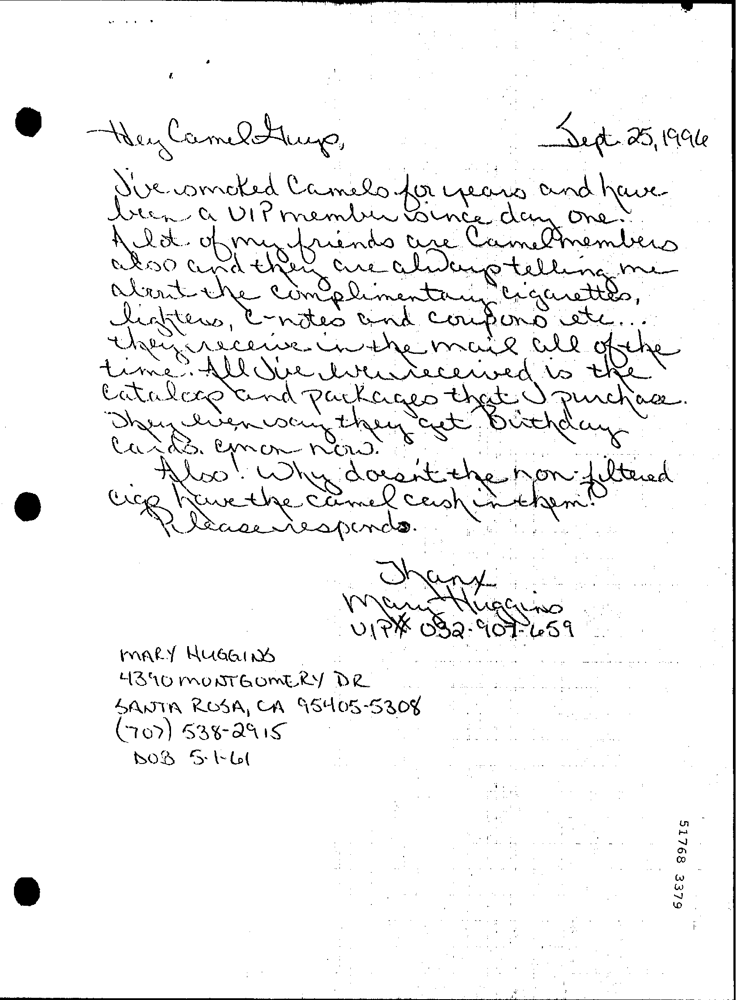 Hey Camel Guys,
Sept. 25, 1996
I've smoked Camels for years and have
been a VIP member since day one.
A lot of my friends are Camel members
also and they are always telling me
about the complimentary cigarettes,
lighters, C-notes and coupons etc...
they receive in the mail all of the
time. All I've ever received is the
catalogs and packages that I purchase.
They even say they get Birthday
cards. cmon now.
Also! Why doesn't the non-filtered
cigs have the camel cash in them?
Please respond.
Thanx
Mary Huggins
VIP# 032-907-659
MARY HUGGINS
4390 MONTGOMERY DR
SANTA ROSA, CA 95405-5308
(707) 538-2915
DOB 5-1-61
51768 3379